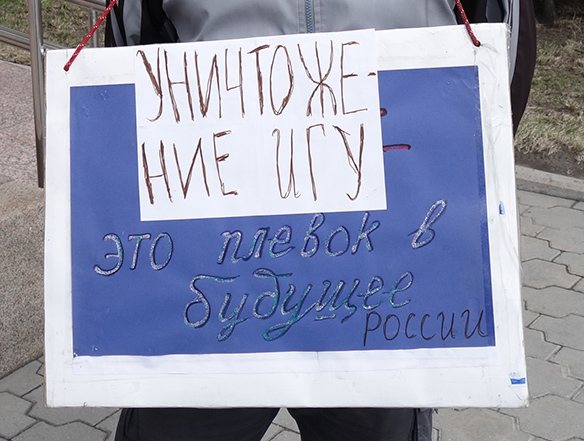 УНИЧТОЖЕ-
НИЕ ИГУ -
это плевок в
будущее
РОССИИ